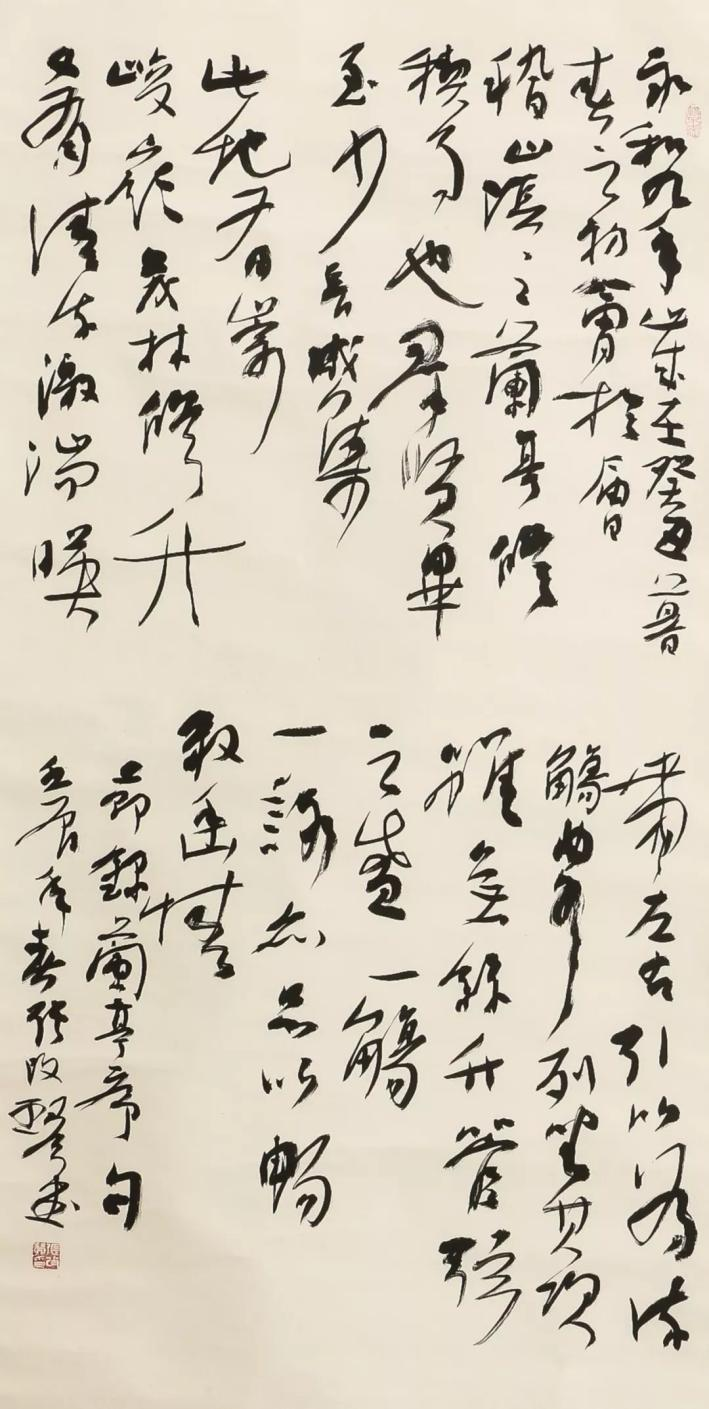 永和九年歲在癸丑暮
春之初會於會
稽山陰之蘭亭修
稧事也羣賢畢
至少長咸集
此地有崇
峻嶺茂林修竹
又有清流激湍暎
帶左右引以為流
觴曲水列坐其次
雖無絲竹管弦
之盛一觴
一詠亦足以暢
敘幽情
節錄蘭亭序句
壬寅年春張改琴書